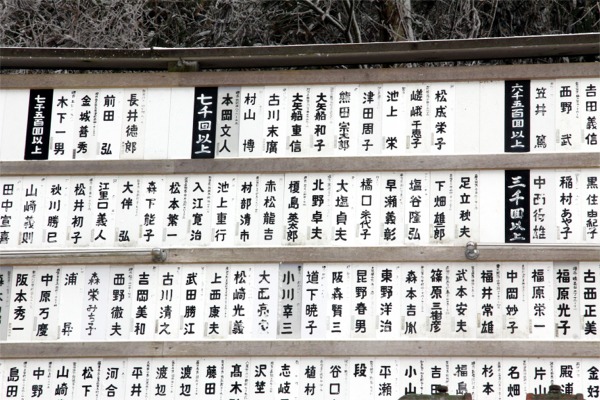 吉田義信
西野武
笠井篤
六千五百回以上
松成栄子
嵯峨千恵子
池上栄
津田周子
熊田宗次郎
大矢船和子
大矢船重信
古川末廣
村山博
本岡文人
七千回以上
長井徳郎
前田弘
金城善秀
木下一男
七千五百回以上
黒住由紀子
稲村あや子
三千回以上
足立秧夫
下畑雄郎
塩谷隆弘
早瀬義彰
橋口米代子
大塩貞夫
北野卓夫
榎島英太郎
赤松龍吉
村部清市
池上重行
入江寛治
松本繁一
森下能子
大伴弘
江里口義人
松井初子
秋川勝巳
山崎義則
田中宣喜
古西正美
福原光子
福原栄一
中岡妙子
福井常雄
武本安夫
篠原三重彦
森本吉胤
東野洋治
昆野春男
阪森賢三
道下暁子
小川幸三
松崎光義
上西康夫
武田勝江
古川清之
吉岡美和
西野徹夫
森栄みち子
浦昇
中原万慶
阪本秀一
金好
殿浦
片山
名畑
杉本
福島
吉田
小山
平瀬
段
谷口
植村
志岐
沢埜
高木
藤田
渡辺
渡辺
平井
河合
松下
山崎
中野
島田